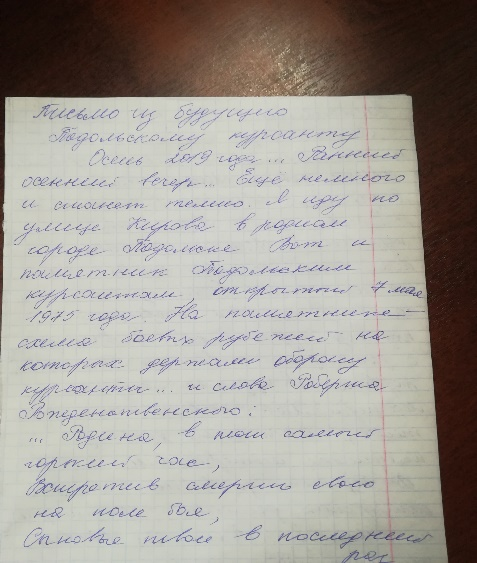 Письмо из будущего
Подольскому курсанту
Осень 2019 года... Ранний
осенний вечер... Ещё немного
и станет темно. Я иду по
улице Кирова в родном
городе Подольске Вот и
памятник Подольским
курсантам, открытый 7 мая
1975 года. На памятнике
схема боевых рубежей на
которых держали оборону
курсанты... и слова Роберта
Рождественского:
... Родина, в тот самый
горький час,
Встретив смерть свою
на поле боя,
Сыновья твои в последний
раз